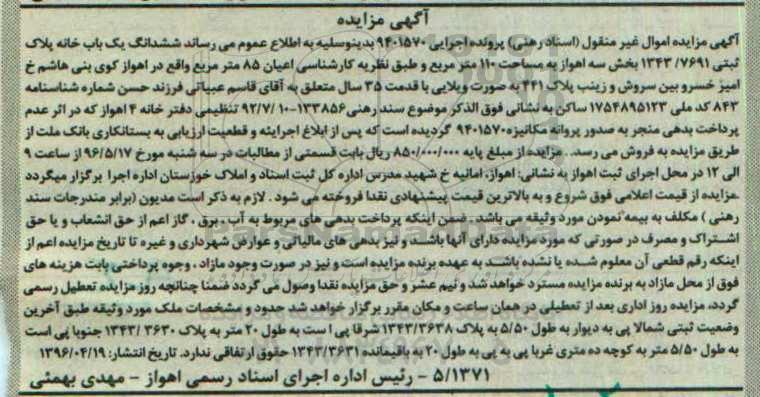 آگهی مزایده
آگهی مزایده اموال غیر منقول (اسناد رهنی) پرونده اجرایی ۹۴۰۱۵۷۰ بدینوسلیه به اطلاع عموم می رساند ششدانگ یک باب خانه پلاک
ثبتی ۱۳۴۳/۷۶۹۱ بخش سه اهواز به مساحت ۱۱۰ متر مربع و طبق نظریه کارشناسی اعیان ۸۵ متر مربع واقع در اهواز کوی بنی هاشم خ
امیز خسرو بین سروش و زینب پلاک ۴۴۱ به صورت ویلایی با قدمت ۳۵ سال متعلق به آقای قاسم عبیاتی فرزند حسن شماره شناسنامه
۸۴۳ کد ملی ۱۷۵۴۸۹۵۱۲۳ ساکن به نشانی فوق الذکر موضوع سند رهنی ۱۳۳۸۵۶-۹۲/۷/۱۰ تنظیمی دفتر خانه ۴ اهواز که در اثر عدم
پرداخت بدهی منجر به صدور پروانه مکانیزه ۹۴۰۱۵۷۰ گردیده است که پس از ابلاغ اجرایئه و قطعیت ارزیابی به بستانکاری بانک ملت از
طریق مزایده به فروش می رسد. . مزایده از مبلغ پایه ۸۵۰/۰۰۰/۰۰۰ ریال بابت قسمتی از مطالبات در سه شنبه مورخ ۹۶/۵/۱۷ از ساعت ۹
الی ۱۲ در محل اجرای ثبت اهواز به نشانی: اهواز، امانیه خ شهید مدرس اداره کل ثبت اسناد و املاک خوزستان اداره اجرا برگزار میگردد
.مزایده از قیمت اعلامی فوق شروع و به بالاترین قیمت پیشنهادی نقدا فروخته می شود . لازم به ذکر است مدیون (برابر مندرجات سند
رهنی ) مکلف به بیمه نمودن مورد وثیقه می باشد. ضمن اینکه پرداخت بدهی های مربوط به آب ، برق ، گاز اعم از حق انشعاب و یا حق
اشتراک و مصرف در صورتی که مورد مزایده دارای آنها باشد و نیز بدهی های مالیاتی و عوارض شهرداری و غیره تا تاریخ مزایده اعم از
اینکه رقم قطعی آن معلوم شده یا نشده باشد به عهده برنده مزایده است و نیز در صورت وجود مازاد ، وجوه پرداختی بابت هزینه های
فوق از محل مازاد به برنده مزایده مسترد خواهد شد و نیم عشر و حق مزایده نقدا وصول می گردد ضمنا چنانچه روز مزایده تعطیل رسمی
گردد، مزایده روز اداری بعد از تعطیلی در همان ساعت و مکان مقرر برگزار خواهد شد حدود و مشخصات ملک مورد وثیقه طبق آخرین
وضعیت ثبتی شمالا پی به دیوار به طول ۵/۵۰ به پلاک ۱۳۴۳/۳۶۳۸ شرقا پی ا ست به طول ۲۰ متر به پلاک ۳۶۳۰ /۱۳۴۳ جنوبا پی است
به طول ۵/۵۰ متر به کوچه ده متری غربا پی به پی به طول ۲۰ به باقیمانده ۱۳۴۳/۳۶۳۱ حقوق ارتفاقی ندارد. تاریخ انتشار: ۱۳۹۶/۰۴/۱۹
۵/۱۳۷۱ - رئیس اداره اجرای اسناد رسمی اهواز - مهدی بهمئی
ParsNamadData